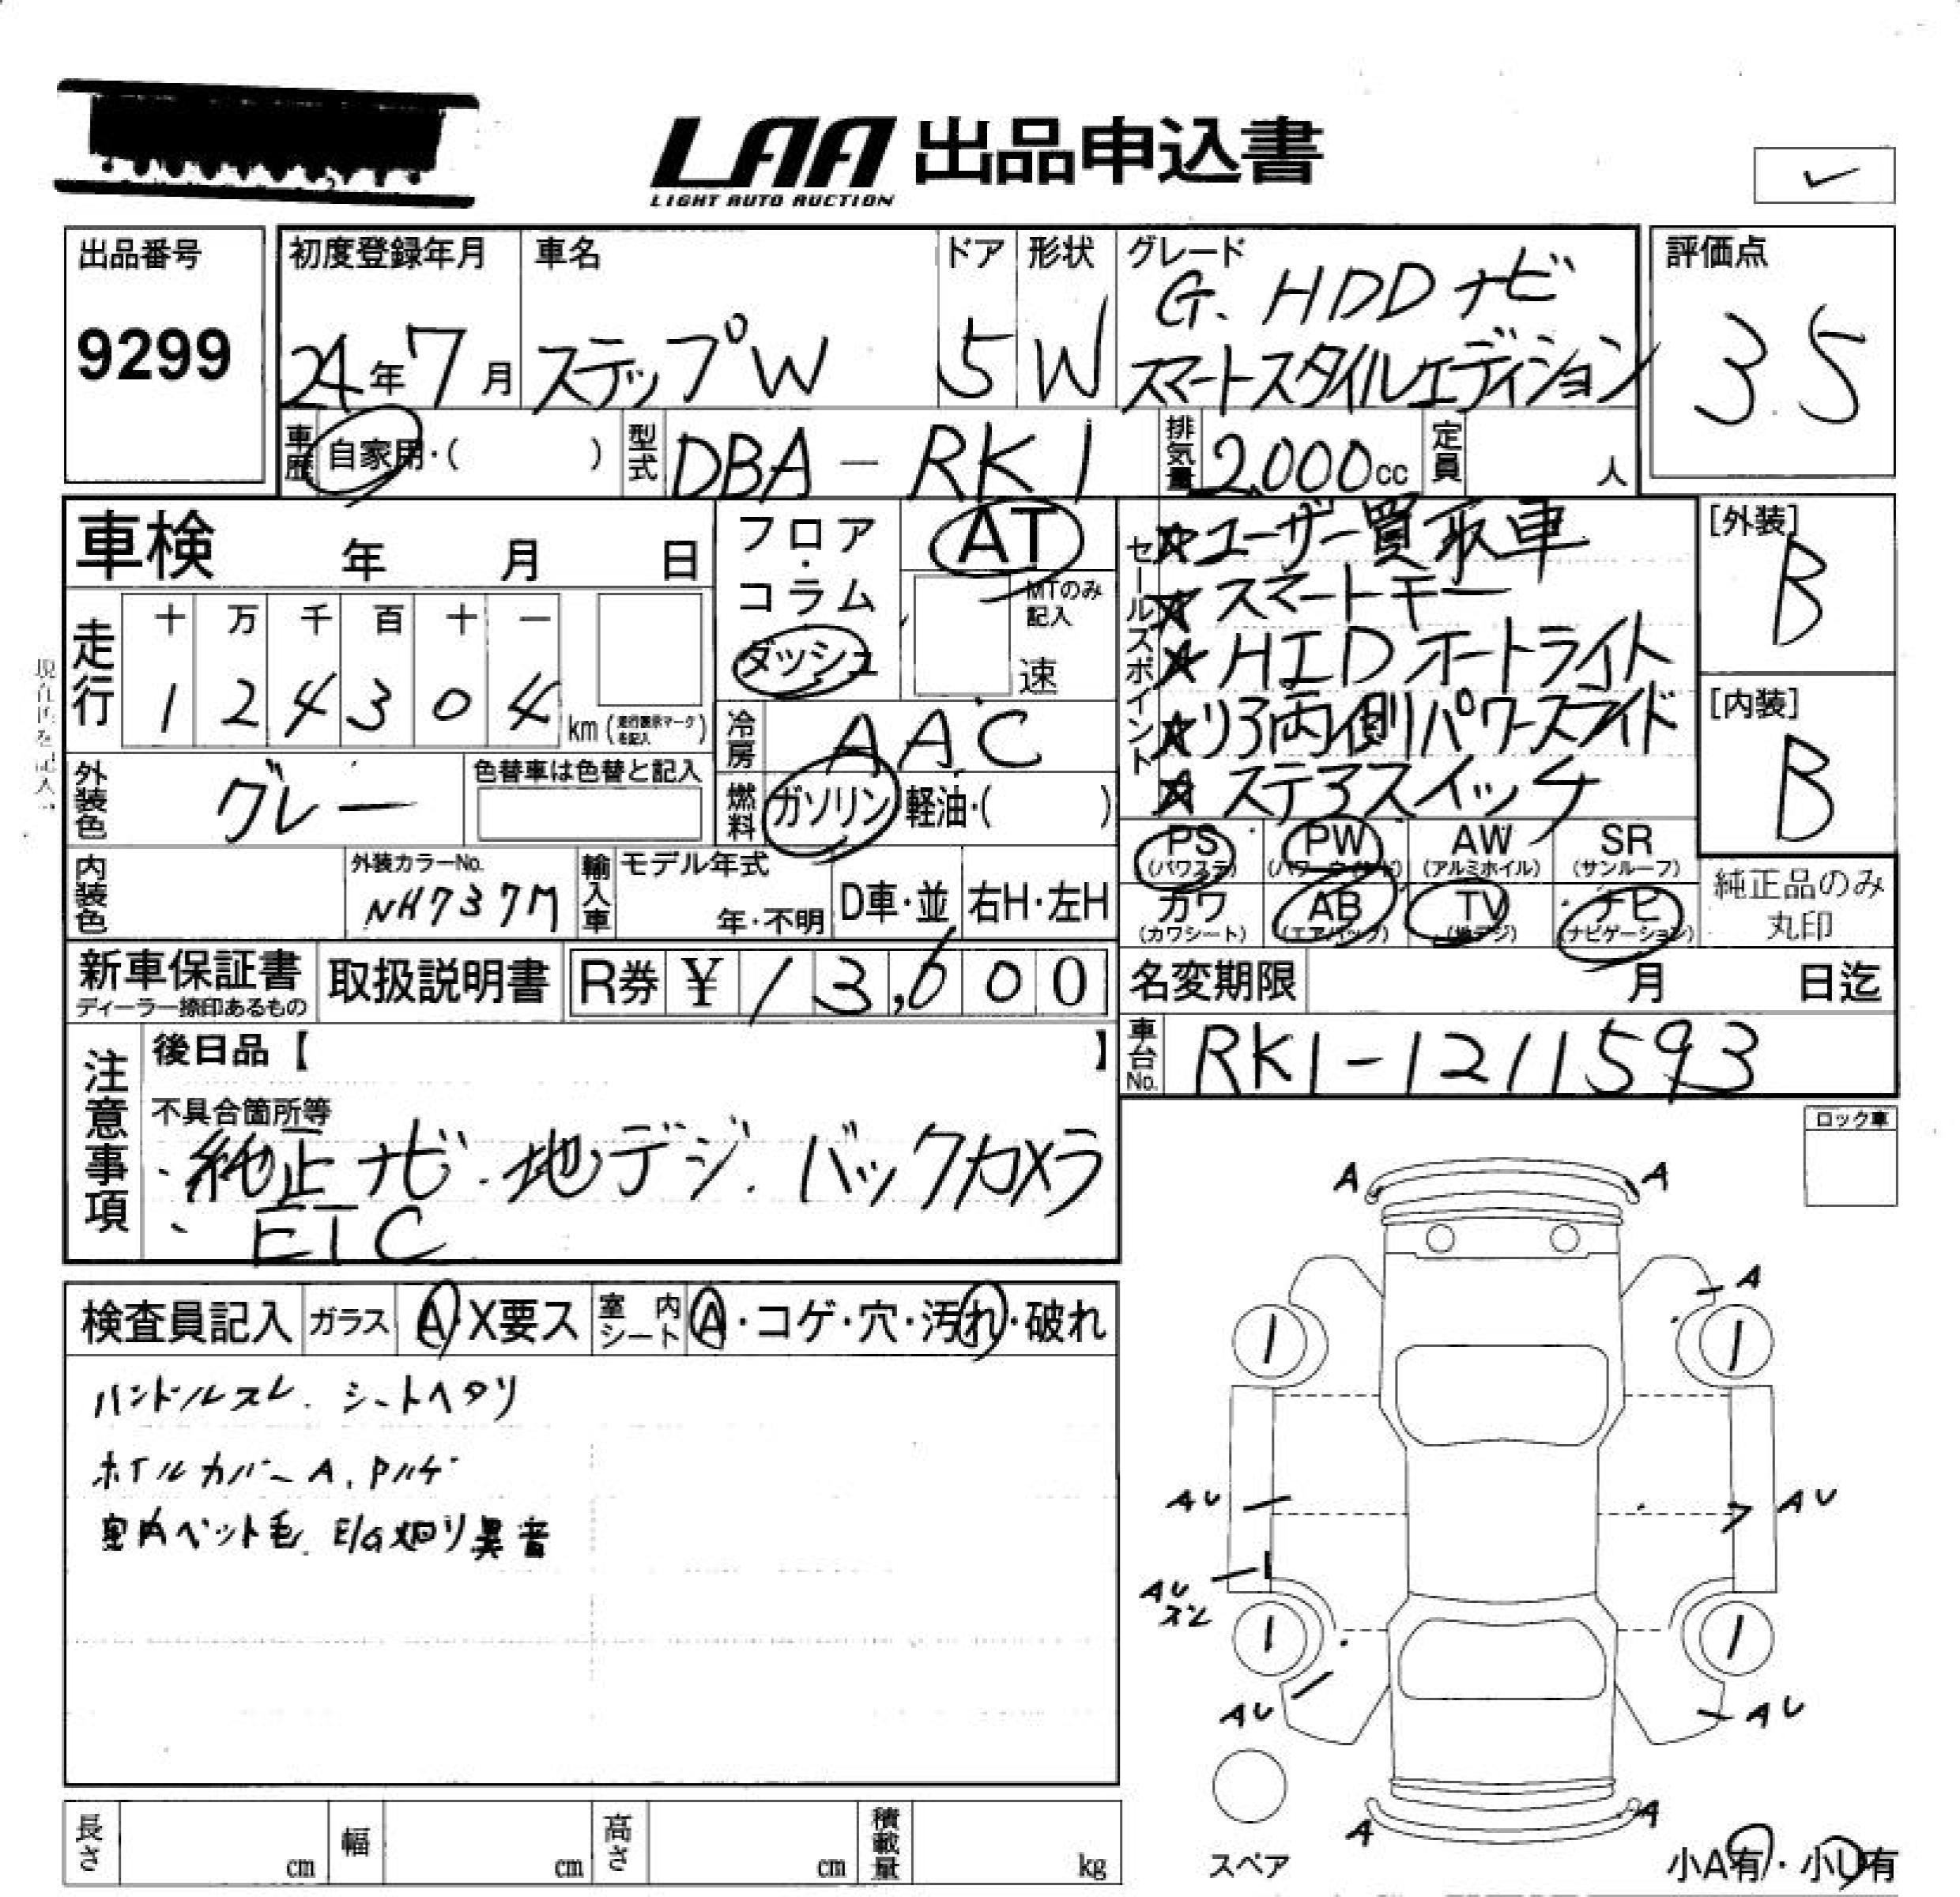 LAA 出品申込書
LIGHT AUTO AUCTION
出品番号
9299
初度登録年月
24年7月
車名
ステップW
ドア
5
形状
W
グレード
G. HDDナビ
スマートスタイルエディション
評価点
3.5
車歴 自家用・( )
型式 DBA-RK1
排気量 2000cc
定員 人
車検 年 月 日
フロア・コラム
ダッシュ
AT
MTのみ記入
速
セールスポイント
☆ユーザー買取車
☆スマートキー
☆HIDオートライト
☆リア両側パワースライド
☆ステアスイッチ
[外装]
B
[内装]
B
走行
十 万 千 百 十 一
1 2 4 3 0 4 km (走行表示マークを記入)
現在値を記入→
冷房 AAC
外装色 グレー
色替車は色替と記入
燃料 ガソリン・軽油・( )
PS (パワステ)
PW (パワーウィンド)
AW (アルミホイル)
SR (サンルーフ)
カワ (カワシート)
AB (エアバック)
TV (地デジ)
ナビ (ナビゲーション)
純正品のみ
丸印
内装色
外装カラーNo.
NH737M
輸入車
モデル年式
年・不明
D車・並
右H・左H
新車保証書
ディーラー捺印あるもの
取扱説明書
R券 ¥ 13,600
名変期限 月 日迄
車台No. RK1-1211593
注意事項
後日品【 】
不具合箇所等
純正ナビ. 地デジ. バックカメラ
ETC
ロック車
検査員記入 ガラス A・X要ス 室内シート A・コゲ・穴・汚れ・破れ
ハンドルスレ. シートヘタリ
ホイルカバーA. Pハゲ
室内ペット毛. E/G廻り異音
A A
A
1 1
AU AU
AU
スレ
1 1
AU AU
A A
スペア
小A有・小U有
長さ cm 幅 cm 高さ cm 積載量 kg